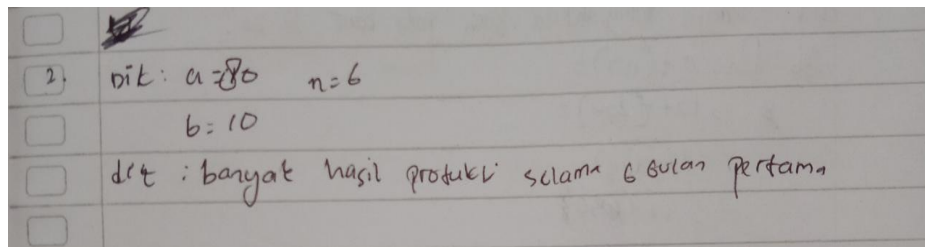 2. Dik : a = 80 n = 6
b = 10
dit : banyak hasil produksi selama 6 bulan pertama